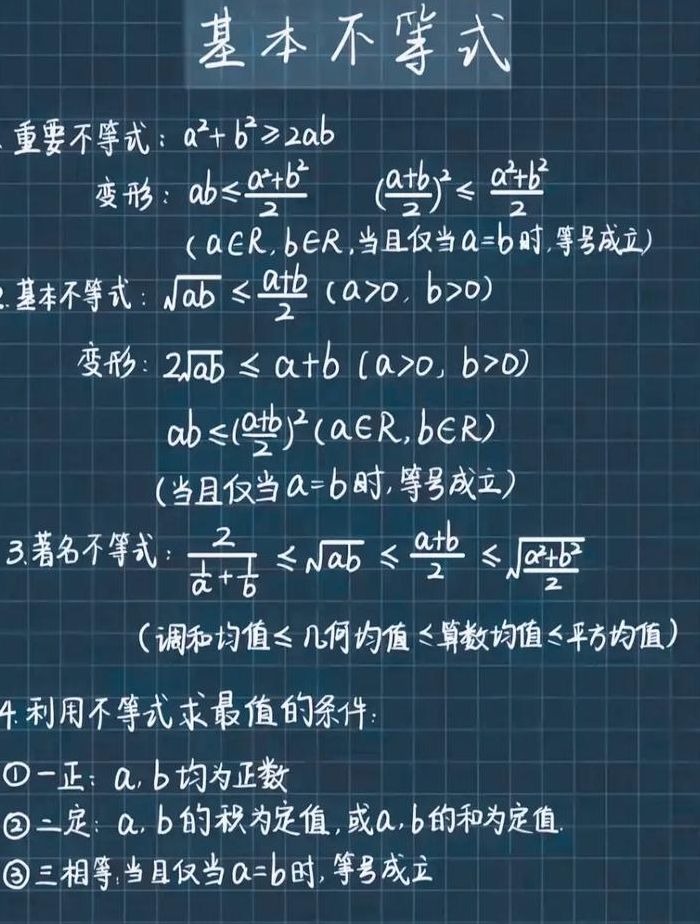 基本不等式
1.重要不等式：a²+b²≥2ab
变形：ab≤(a²+b²)/2 ((a+b)/2)²≤(a²+b²)/2
(a∈R,b∈R,当且仅当a=b时,等号成立)
2.基本不等式：√ab ≤ (a+b)/2 (a>0, b>0)
变形：2√ab ≤ a+b (a>0, b>0)
ab≤((a+b)/2)²(a∈R,b∈R)
(当且仅当a=b时,等号成立)
3.著名不等式：2/(1/a+1/b) ≤ √ab ≤ (a+b)/2 ≤ √((a²+b²)/2)
(调和均值≤几何均值≤算数均值≤平方均值)
4.利用不等式求最值的条件：
①一正：a,b均为正数
②二定：a,b的积为定值,或a,b的和为定值.
③三相等:当且仅当a=b时,等号成立